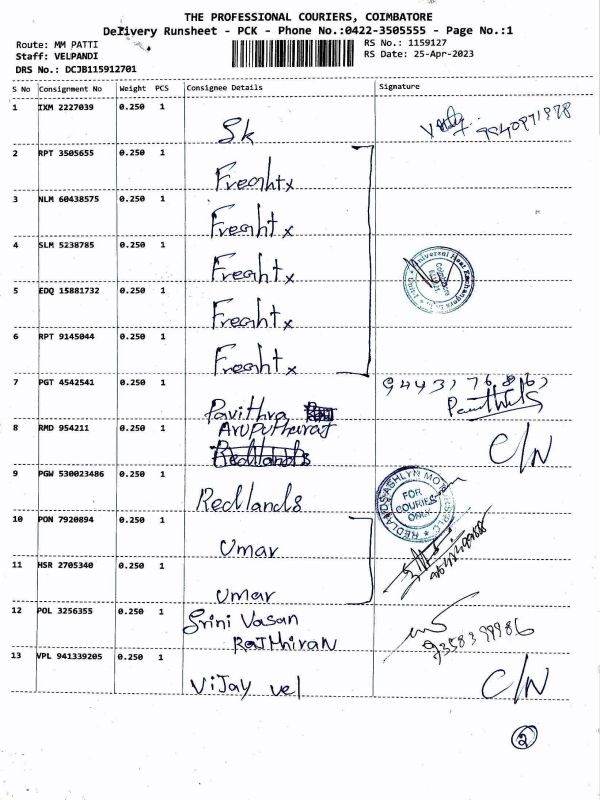 THE PROFESSIONAL COURIERS, COIMBATORE
Delivery Runsheet - PCK - Phone No.:0422-3505555 - Page No.:1
Route: MM PATTI
Staff: VELPANDI
DRS No.: DCJB115912701
RS No.: 1159127
RS Date: 25-Apr-2023
S No Consignment No Weight PCS Consignee Details Signature
1 IXM 2227039 0.250 1 Sk
2 RPT 3505655 0.250 1 Freahtx
3 NLM 60438575 0.250 1 Freahtx
4 SLM 5238785 0.250 1 Freahtx
5 EDQ 15881732 0.250 1 Freahtx
6 RPT 9145044 0.250 1 Freahtx
7 PGT 4542541 0.250 1 Pavithra
8 RMD 954211 0.250 1 C/N
9 PGW 530023486 0.250 1 Redlands
REDLANDS ASHLYN MOTORS PLC
FOR
COURIES
ONLY
10 PON 7920894 0.250 1 Umar
11 HSR 2705340 0.250 1 Umar
12 POL 3256355 0.250 1 Srini Vasan
13 VPL 941339205 0.250 1 Vijay vel C/N
2